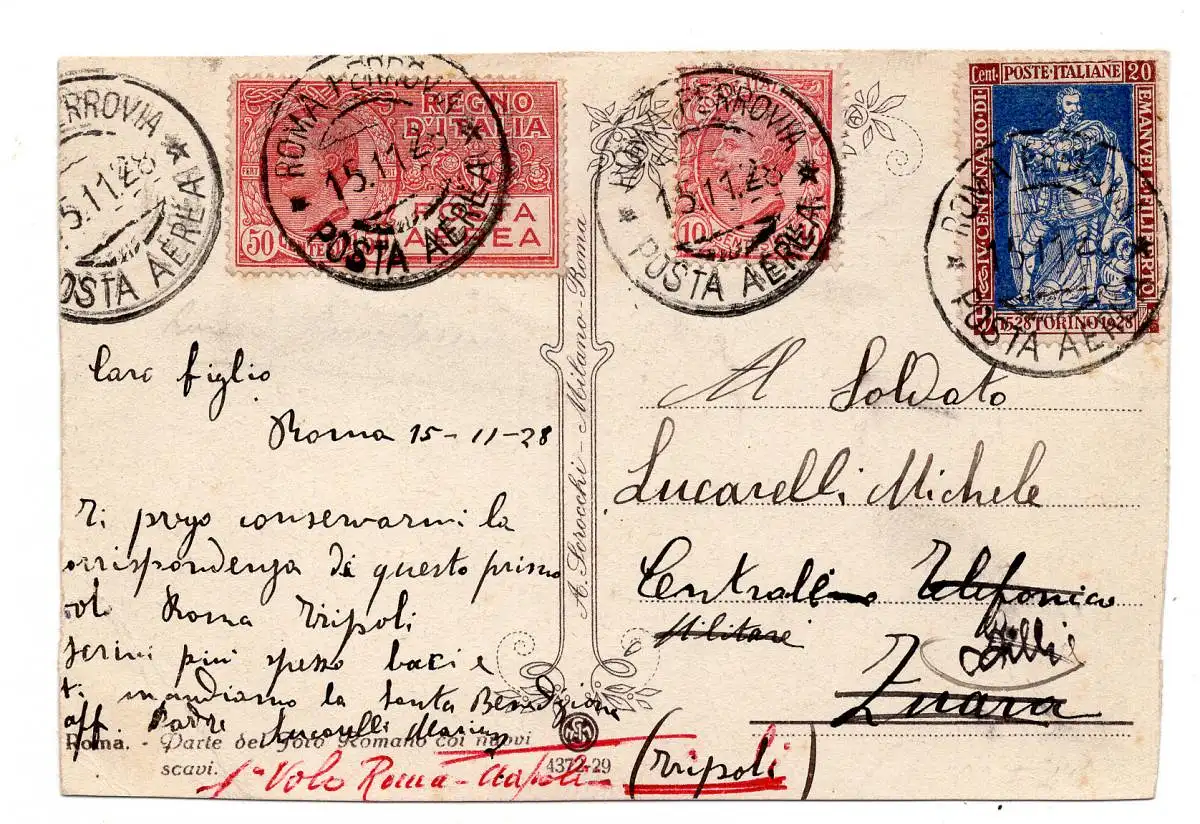 FERROVIA
15.11.28
POSTA AEREA
REGNO
D'ITALIA
50 CENTESIMI
POSTA
AEREA
ROMA FERROVIA
15.11.28
POSTA AEREA
10
ROMA FERROVIA
15.11.28
POSTA AEREA
Cent. POSTE ITALIANE 20
IV CENTENARIO DI
EMANVELE FILIBERTO
1528 TORINO 1928
ROMA FERROVIA
15.11.28
POSTA AEREA
Caro figlio
Roma 15-11-28
Ti prego conservarmi la
orrispondenza di questo primo
volo Roma Tripoli
scrivi più spesso baci e
ti mandiamo la Santa Benedizione
aff Padre Lucarelli
Roma. - Parte del Foro Romano coi nuovi
scavi.
4372-29
1° Volo Roma - Napoli
A. Scrocchi - Milano-Roma
Al Soldato
Lucarelli Michele
Centralino Telefonico
Militare
Zuara
(Tripoli)